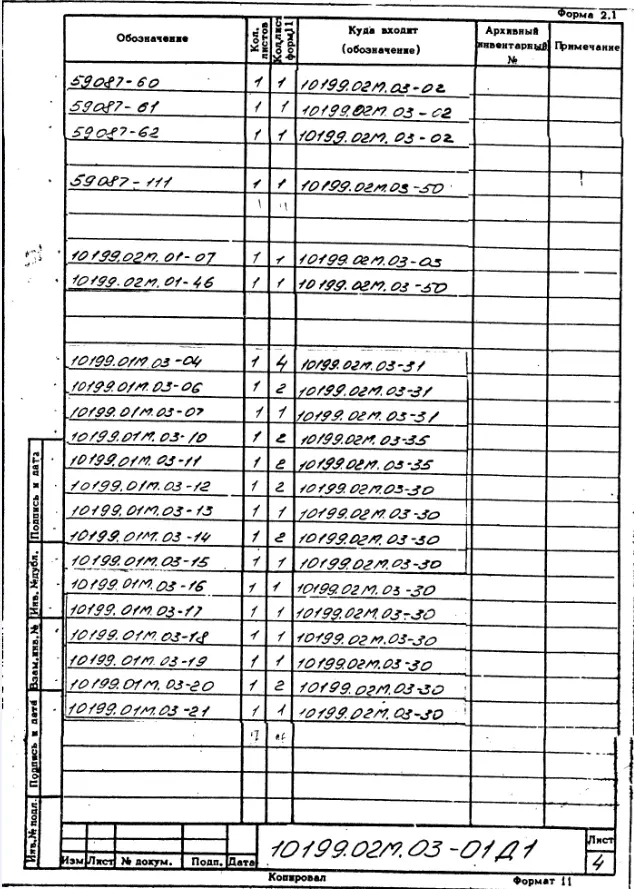 Форма 2.1
Обозначение Кол. листов Кол.лист форм.11 Куда входит (обозначение) Архивный инвентарный № Примечание
59087-60 1 1 10199.02М.03-02
59087-61 1 1 10199.02М.03-02
59087-62 1 1 10199.02М.03-02
59087-111 1 1 10199.02М.03-50
10199.02М.01-07 1 1 10199.02М.03-03
10199.02М.01-46 1 1 10199.02М.03-50
10199.01М.03-04 1 4 10199.02М.03-31
10199.01М.03-06 1 2 10199.02М.03-31
10199.01М.03-07 1 1 10199.02М.03-31
10199.01М.03-10 1 2 10199.02М.03-35
10199.01М.03-11 1 2 10199.02М.03-35
10199.01М.03-12 1 2 10199.02М.03-30
10199.01М.03-13 1 1 10199.02М.03-30
10199.01М.03-14 1 2 10199.02М.03-30
10199.01М.03-15 1 1 10199.02М.03-30
10199.01М.03-16 1 1 10199.02М.03-30
10199.01М.03-17 1 1 10199.02М.03-30
10199.01М.03-18 1 1 10199.02М.03-30
10199.01М.03-19 1 1 10199.02М.03-30
10199.01М.03-20 1 2 10199.02М.03-30
10199.01М.03-21 1 1 10199.02М.03-30
Подпись и дата
Инв. №дубл.
Взам.инв.№
Подпись и дата
Инв.№ подл.
Изм Лист № докум. Подп. Дата
10199.02М.03-01Д1
Лист
4
Копировал Формат 11